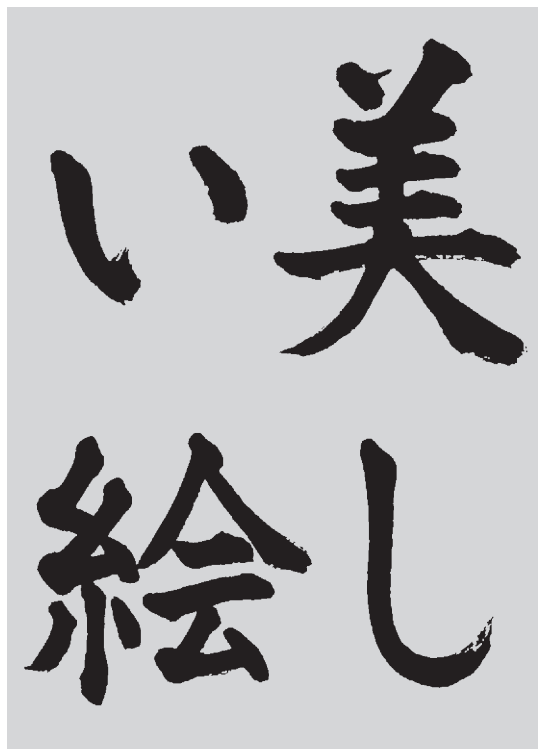 美し
い絵